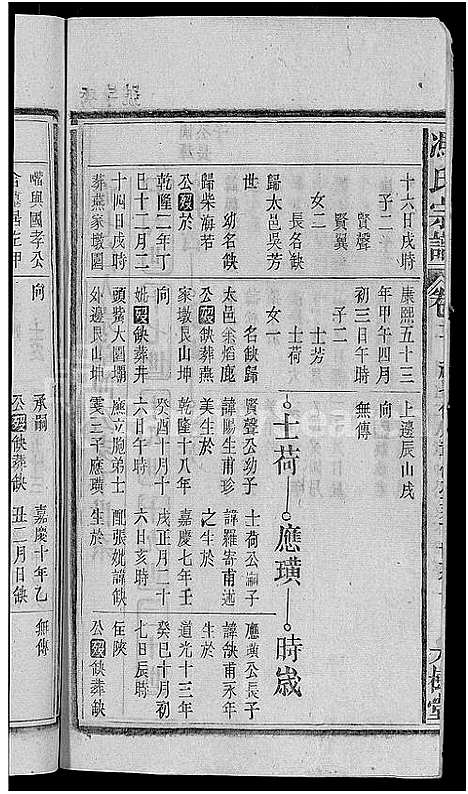 馮氏宗譜
大樹堂
十六日戌時
子二
賢聲
賢翼
女二
長名缺
歸太邑吳芳
世
幼名缺
歸柴海若
公歿於
乾隆二年丁
巳十二月二
十四日戌時
葬燕家墩圍
康熙五十三
年甲午四月
初三日午時
子二
士芳
士荷
女一
名缺歸
太邑余焰鹿
公歿缺葬燕
家墩艮山坤
妣歿缺葬井
頭嘴大園壩
外邊艮山坤
上邊辰山戌
無傳
士荷
應璜
時歲
賢聲公幼子
諱賜生甫珍
美生於
乾隆十八年
癸酉十月十
六日午時
應立胞弟士
雯三子應璜
士荷公嗣子
諱羅寄甫蓮
之生於
嘉慶七年壬
戌正月二十
六日亥時
配張妣諱缺
生於
應璜公長子
諱缺甫永年
生於
道光十三年
癸巳十月初
七日辰時
在陝
公歿缺葬缺
嘴與國孝公
向
承嗣
公歿缺葬缺
嘉慶十年乙
丑二月日缺
無傳